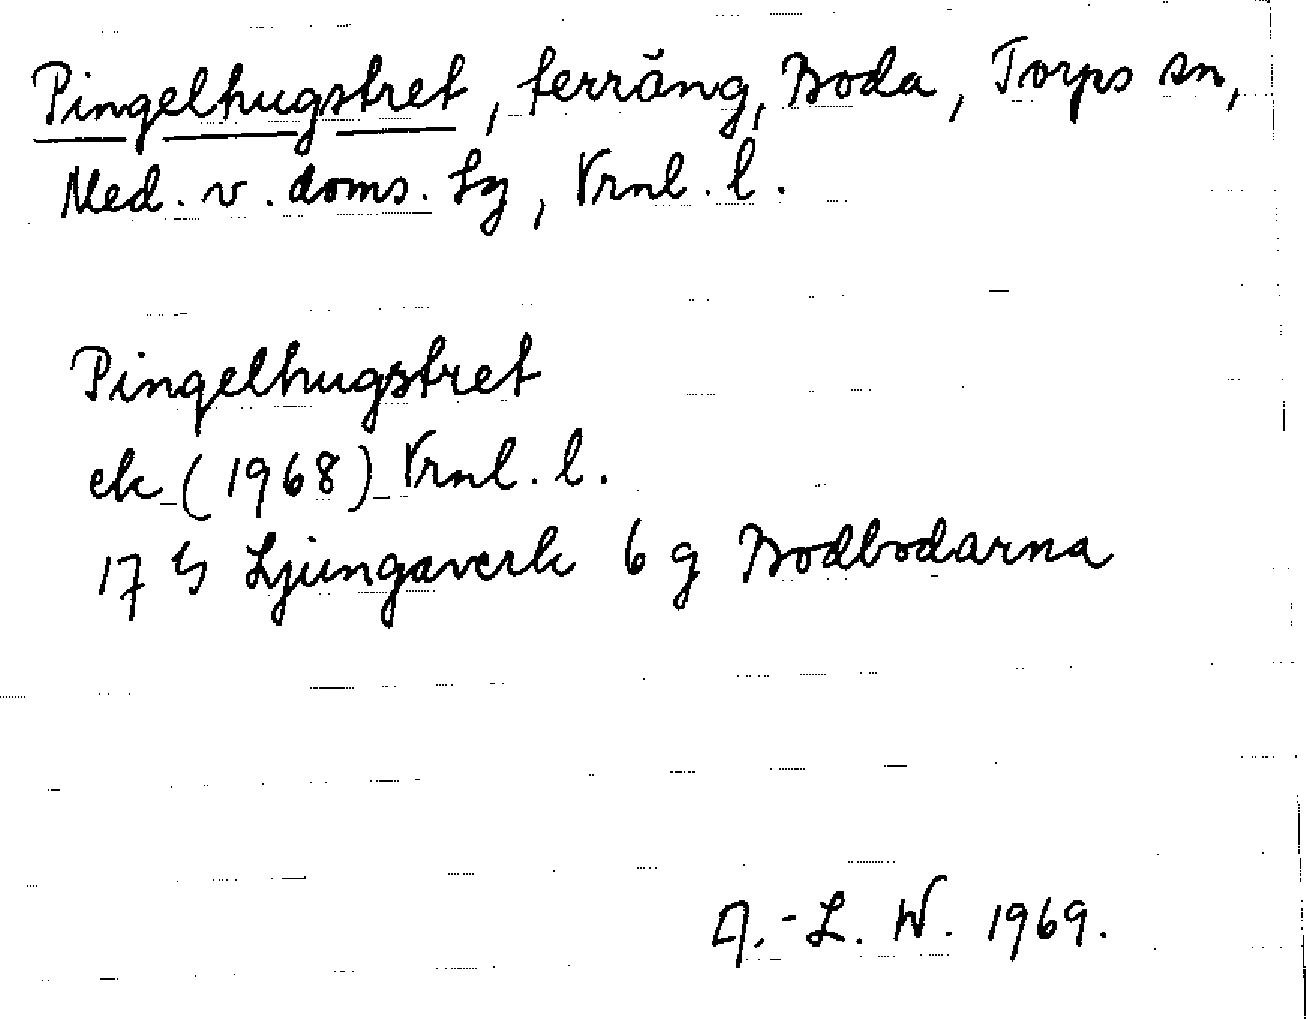 Pingelhugstret, terräng, Boda, Torps sn,
Med. v. doms. lg, Vrnl. l.
Pingelhugstret
ek (1968) Vrnl. l.
17 G Ljungaverk 6 g Bodbodarna
A.-L. W. 1969.